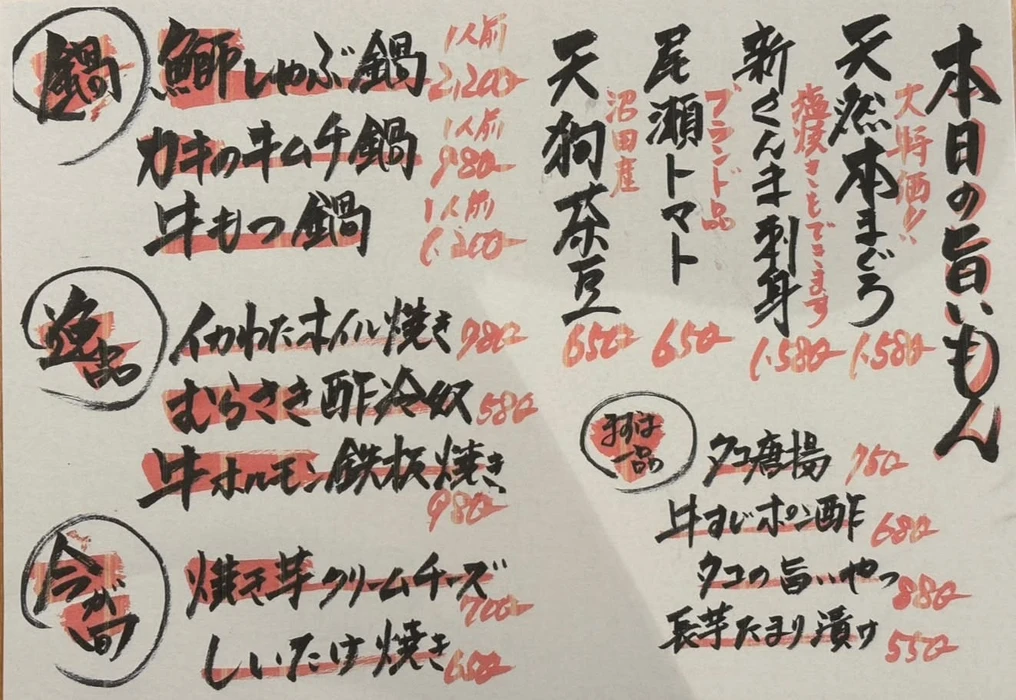 本日の旨いもん
大将価!!
天然本まぐろ
1,580
塩焼きもできます
新さんま刺身
1,580
ブランド品
尾瀬トマト
650
沼田産
天狗茶豆
650
まずは一品
タコ唐揚 750
牛すじポン酢 680
タコの旨いやつ 880
長芋たまり漬け 550
鍋
鰤しゃぶ鍋 1人前 2,200
カキのキムチ鍋 1人前 980
牛もつ鍋 1人前 1,200
逸品
イカわたホイル焼き 980
むらさき酢冷奴 580
牛ホルモン鉄板焼き 980
今が旬
焼き芋クリームチーズ 700
しいたけ焼き 650